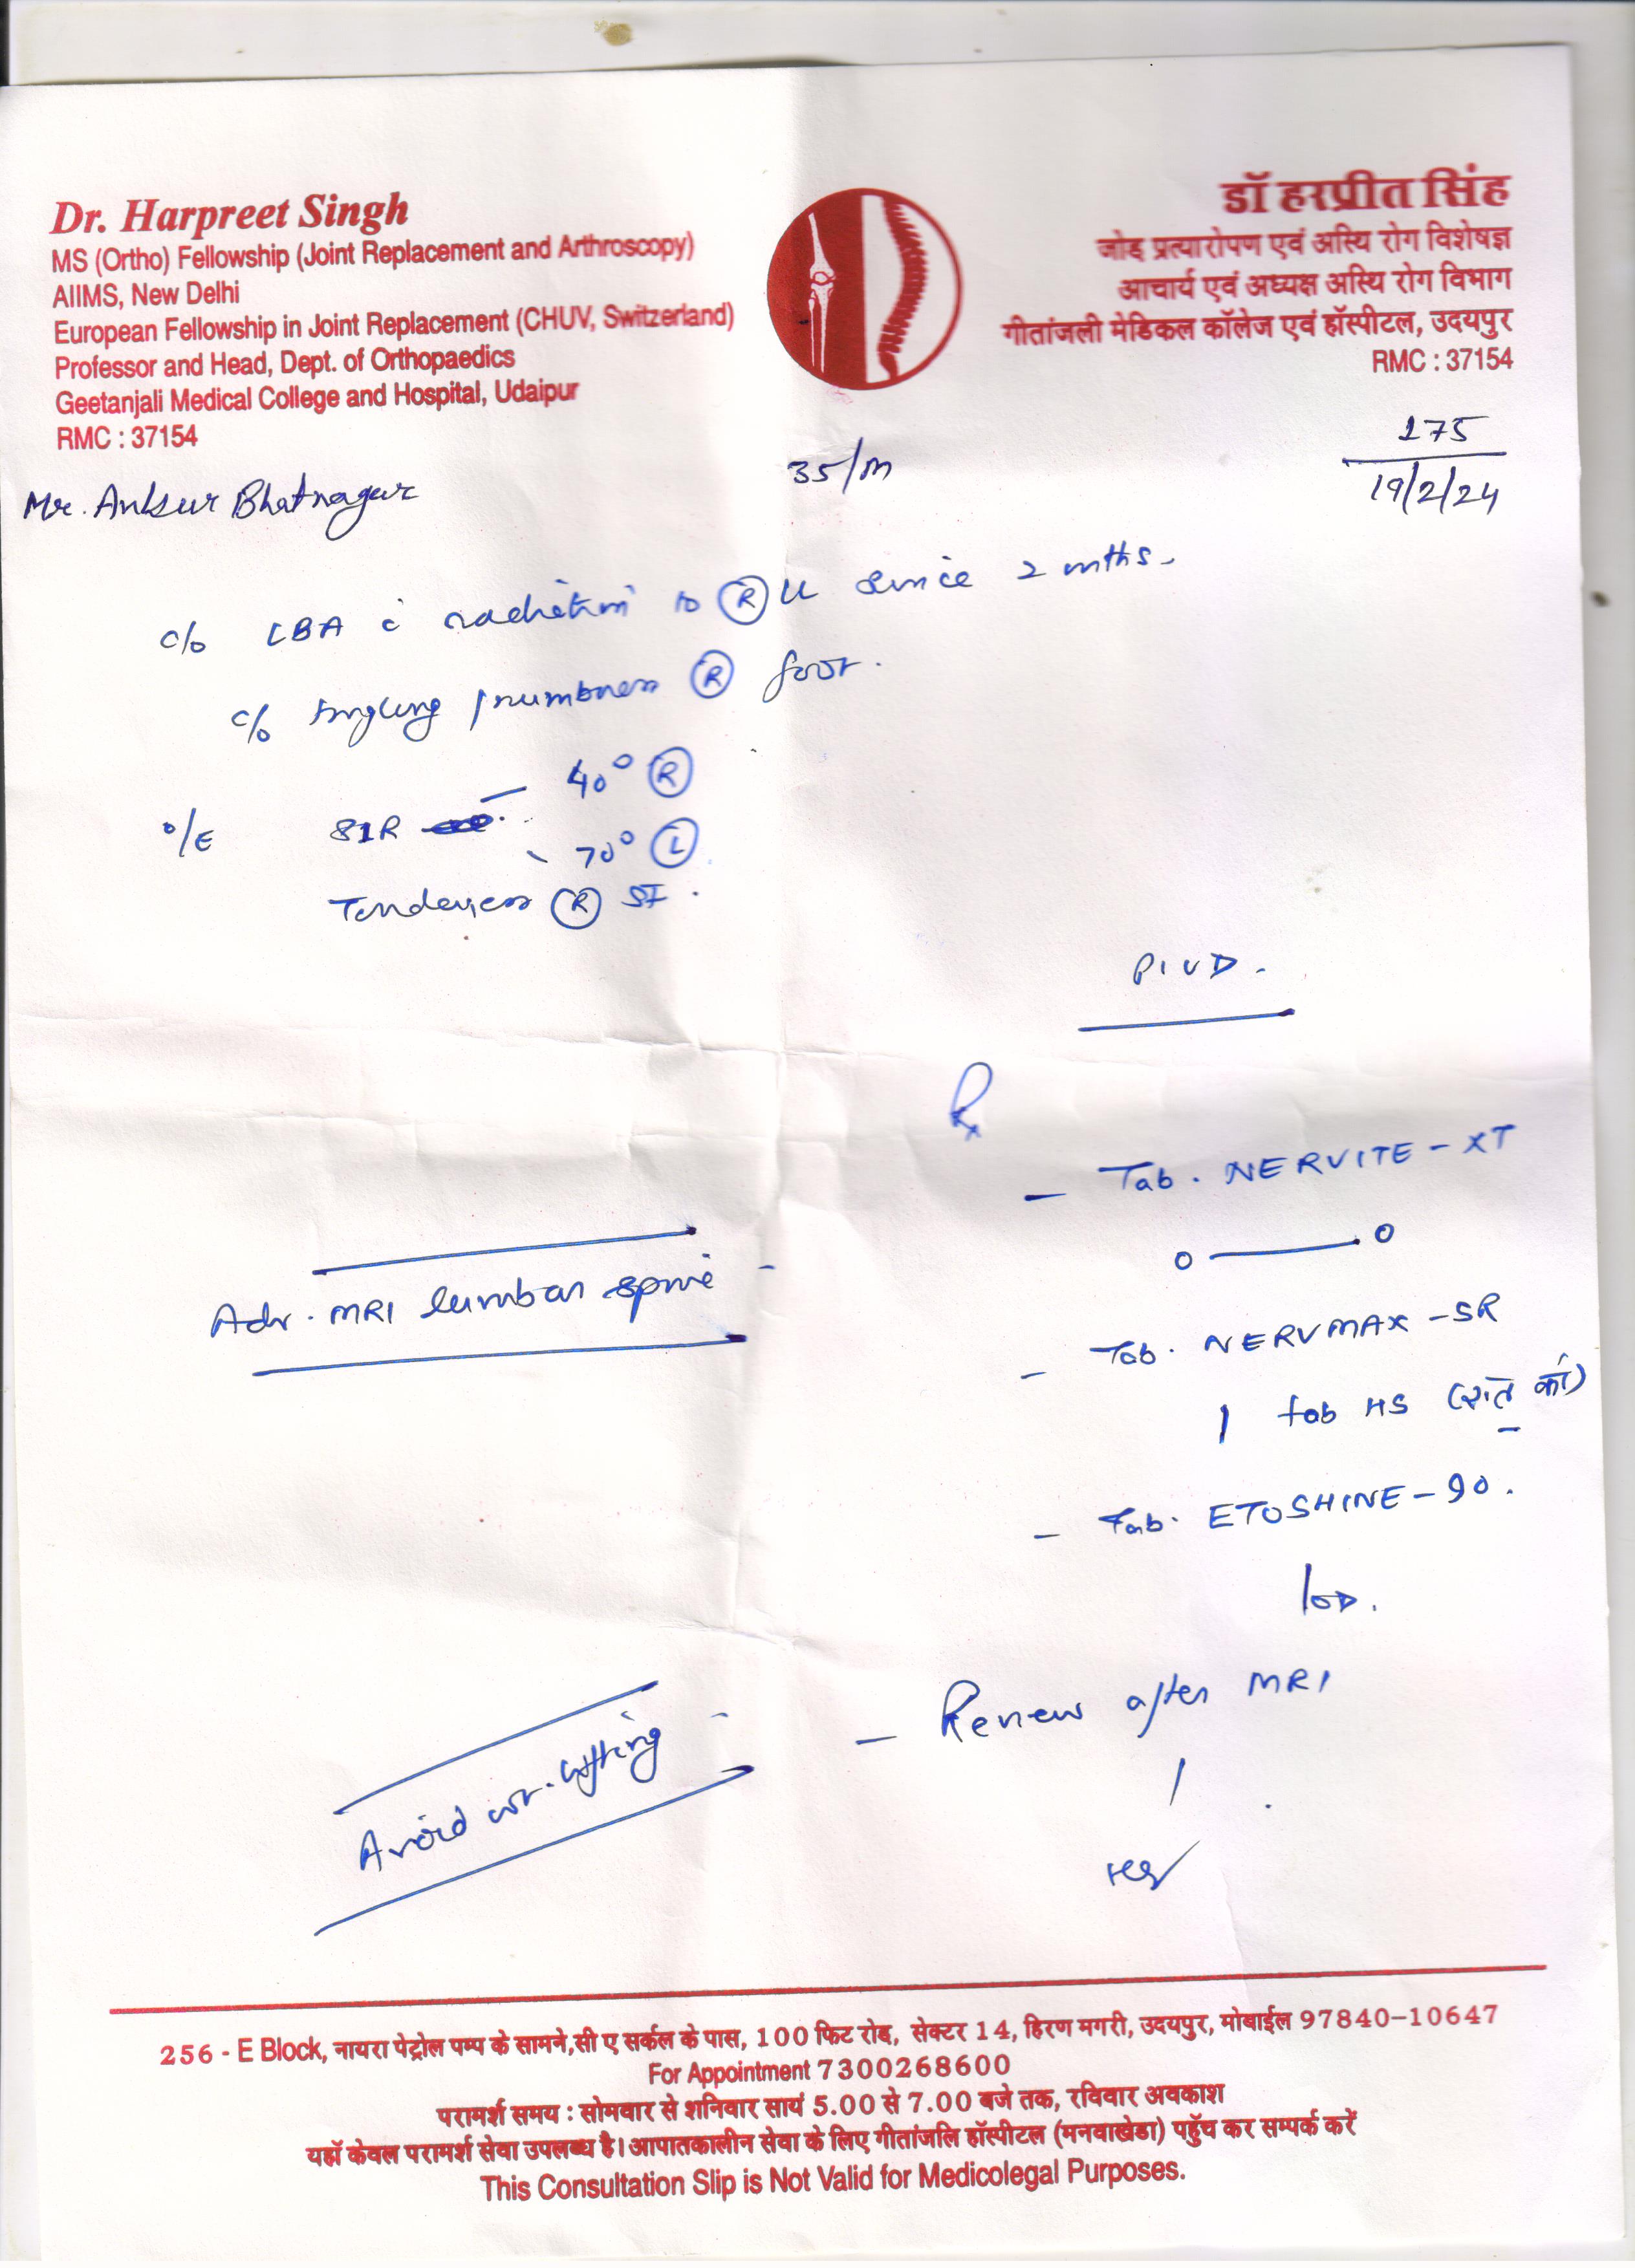 Dr. Harpreet Singh
MS (Ortho) Fellowship (Joint Replacement and Arthroscopy)
AIIMS, New Delhi
European Fellowship in Joint Replacement (CHUV, Switzerland)
Professor and Head, Dept. of Orthopaedics
Geetanjali Medical College and Hospital, Udaipur
RMC : 37154
डॉ हरप्रीत सिंह
जोड़ प्रत्यारोपण एवं अस्थि रोग विशेषज्ञ
आचार्य एवं अध्यक्ष अस्थि रोग विभाग
गीतांजली मेडिकल कॉलेज एवं हॉस्पीटल, उदयपुर
RMC : 37154
175
19/2/24
Mr. Ankur Bhatnagar 35/M
c/o LBA c radiation to (R) LL since 2 mths.
c/o tingling / numbness (R) foot.
O/E SLR 40° (R)
70° (L)
Tenderness (R) SI.
PIVD.
Rx
- Tab. NERVITE-XT
o — o
Adv. MRI lumbar spine
- Tab. NERVMAX-SR
1 tab HS (रात को)
- Tab. ETOSHINE-90.
1 OD.
- Review after MRI
Avoid wt. lifting
256 - E Block, नायरा पेट्रोल पम्प के सामने,सी ए सर्कल के पास, 100 फिट रोड, सेक्टर 14, हिरण मगरी, उदयपुर, मोबाईल 97840-10647
For Appointment 7300268600
परामर्श समय : सोमवार से शनिवार सायं 5.00 से 7.00 बजे तक, रविवार अवकाश
यहाँ केवल परामर्श सेवा उपलब्ध है। आपातकालीन सेवा के लिए गीतांजलि हॉस्पीटल (मनवाखेडा) पहुँच कर सम्पर्क करें
This Consultation Slip is Not Valid for Medicolegal Purposes.